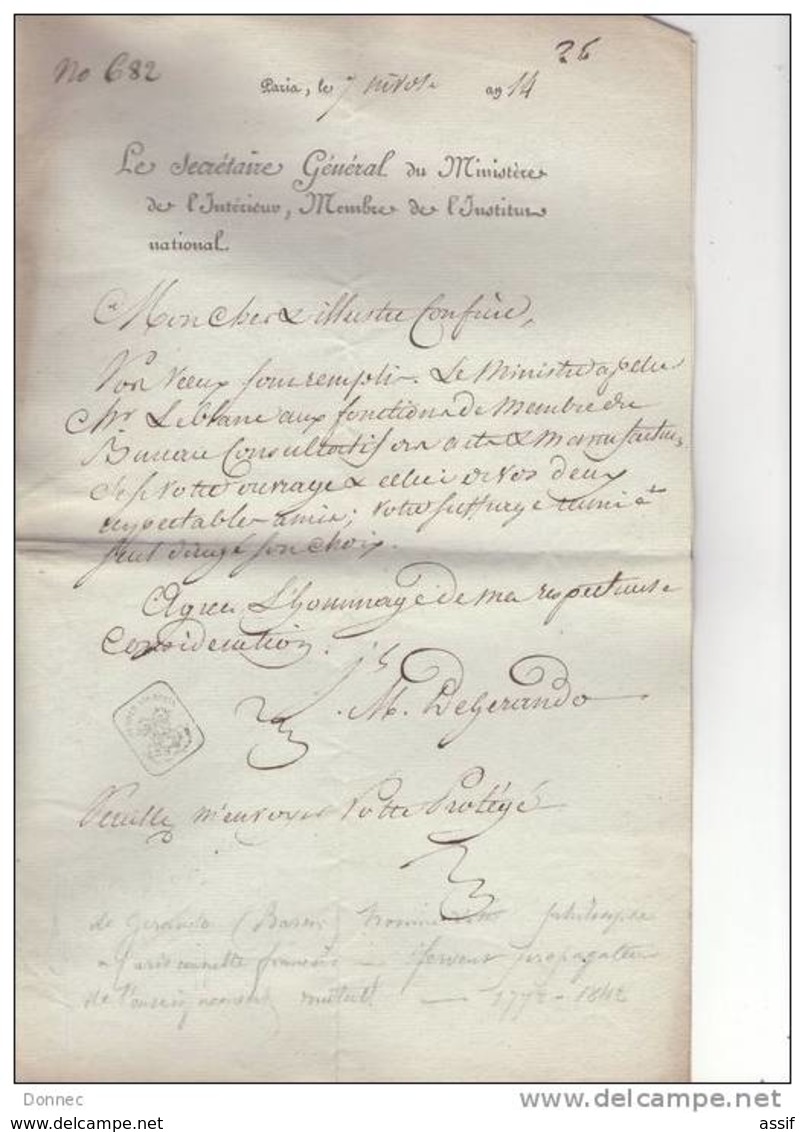 26
No 682
Paris, le 7 nivose an 14
Le Secrétaire Général du Ministère
de l'Intérieur, Membre de l'Institut
national.
Mon cher & illustre Confrère,
Vos voeux sont remplis. Le Ministre appelle
Mr Leblanc aux fonctions de Membre du
Bureau Consultatif des arts & Manufactures,
C'est votre ouvrage & celui de vos deux
respectables amis; votre suffrage réuni a
seul dirigé son choix.
Agréez L'hommage de ma respectueuse
Considération.
M. Degerando
Veuillez m'envoyer Votre Protégé
de Gerando (Baron) philanthrope
français — fervent propagateur
de l'enseignement mutuel — 1772 - 1842
Donnec
www.delcampe.net
assif